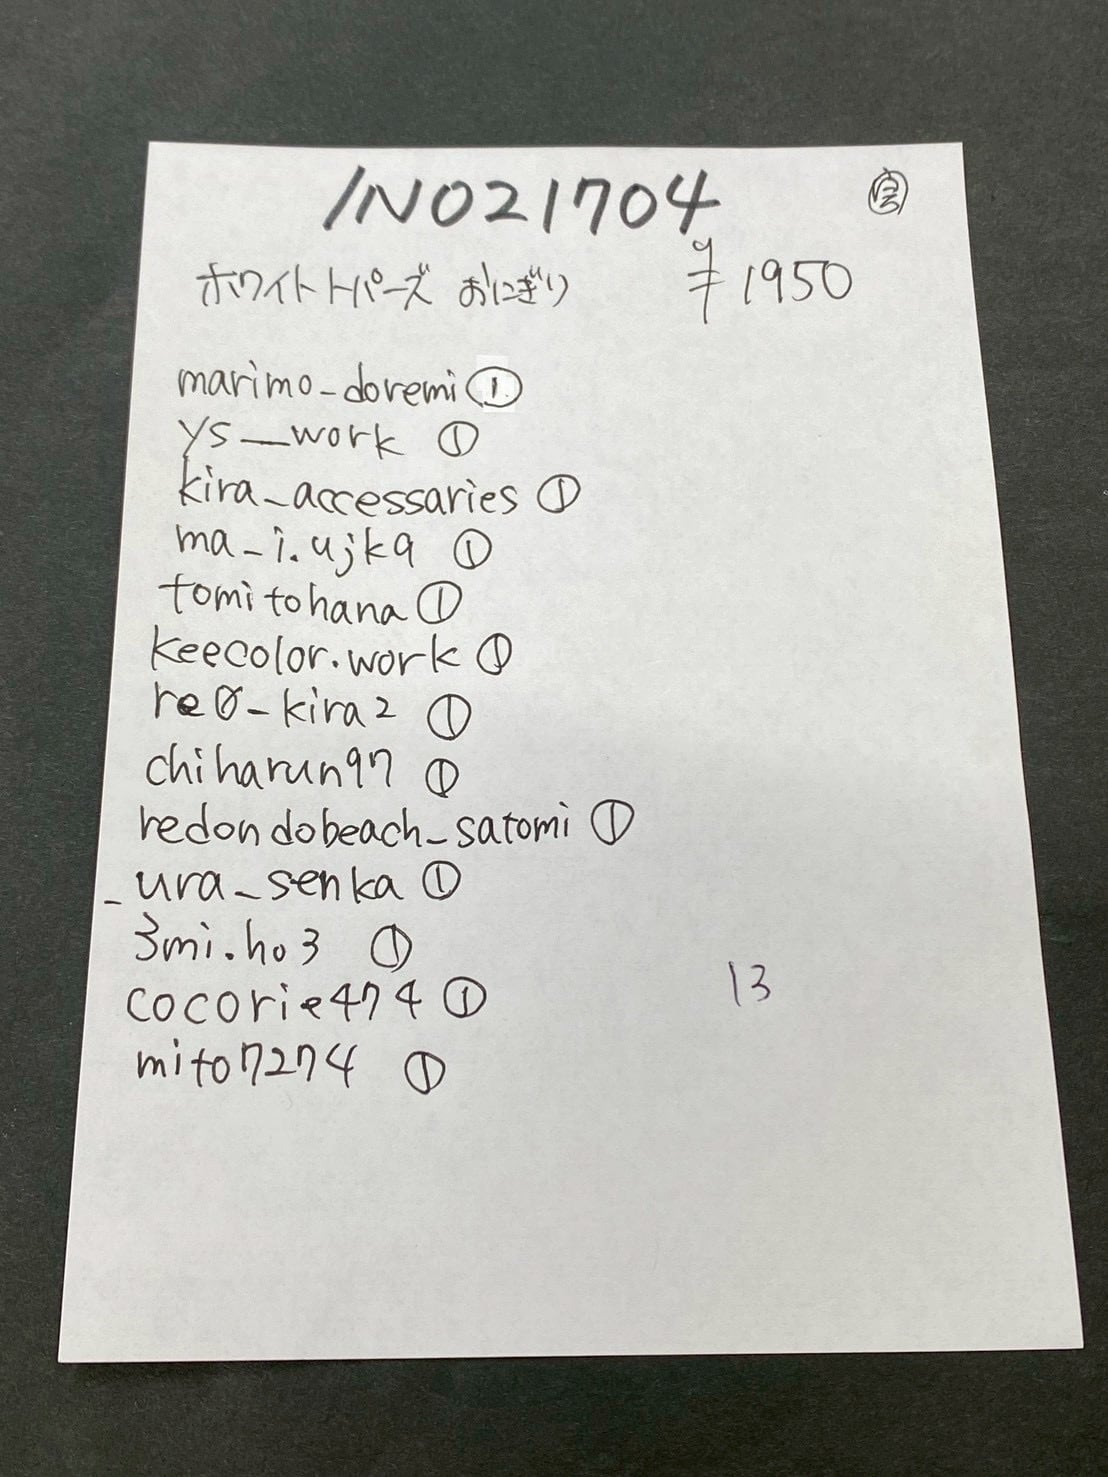 INO21704
ホワイトトパーズ おにぎり ¥1950
marimo_doremi ①
ys__work ①
kira_accessaries ①
ma_i.ujk9 ①
tomitohana ①
keecolor.work ①
re0_kira2 ①
chiharun97 ①
redondobeach_satomi ①
_ura_senka ①
3mi.ho3 ①
cocorie474 ①
13
mito7274 ①